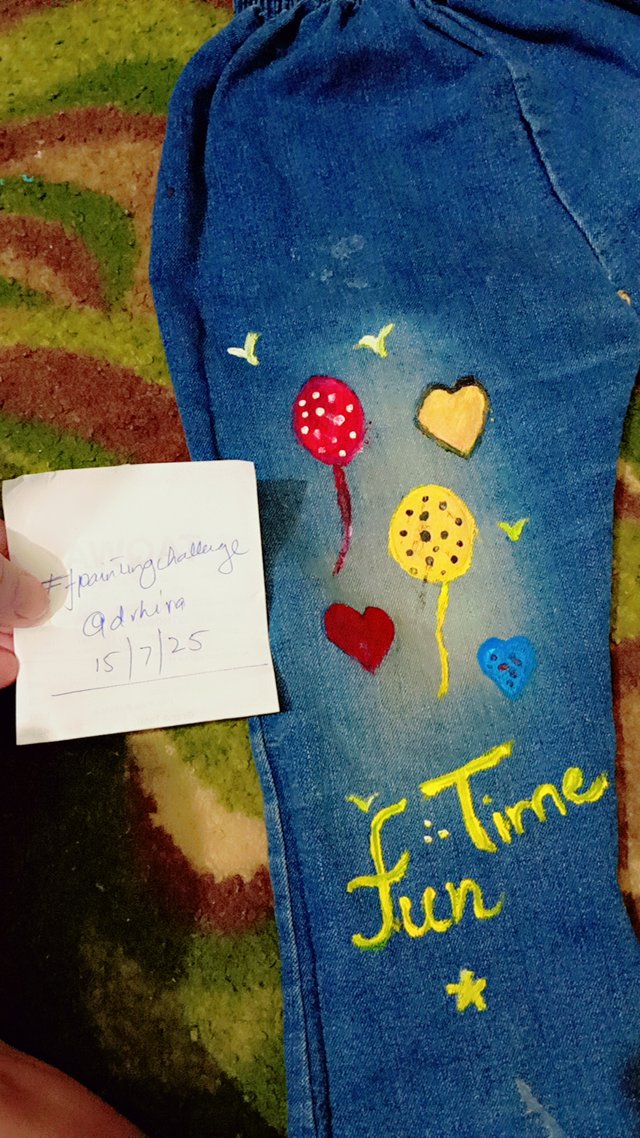 #fpaintingchallenge
@drhira
15/7/25
Time
Fun